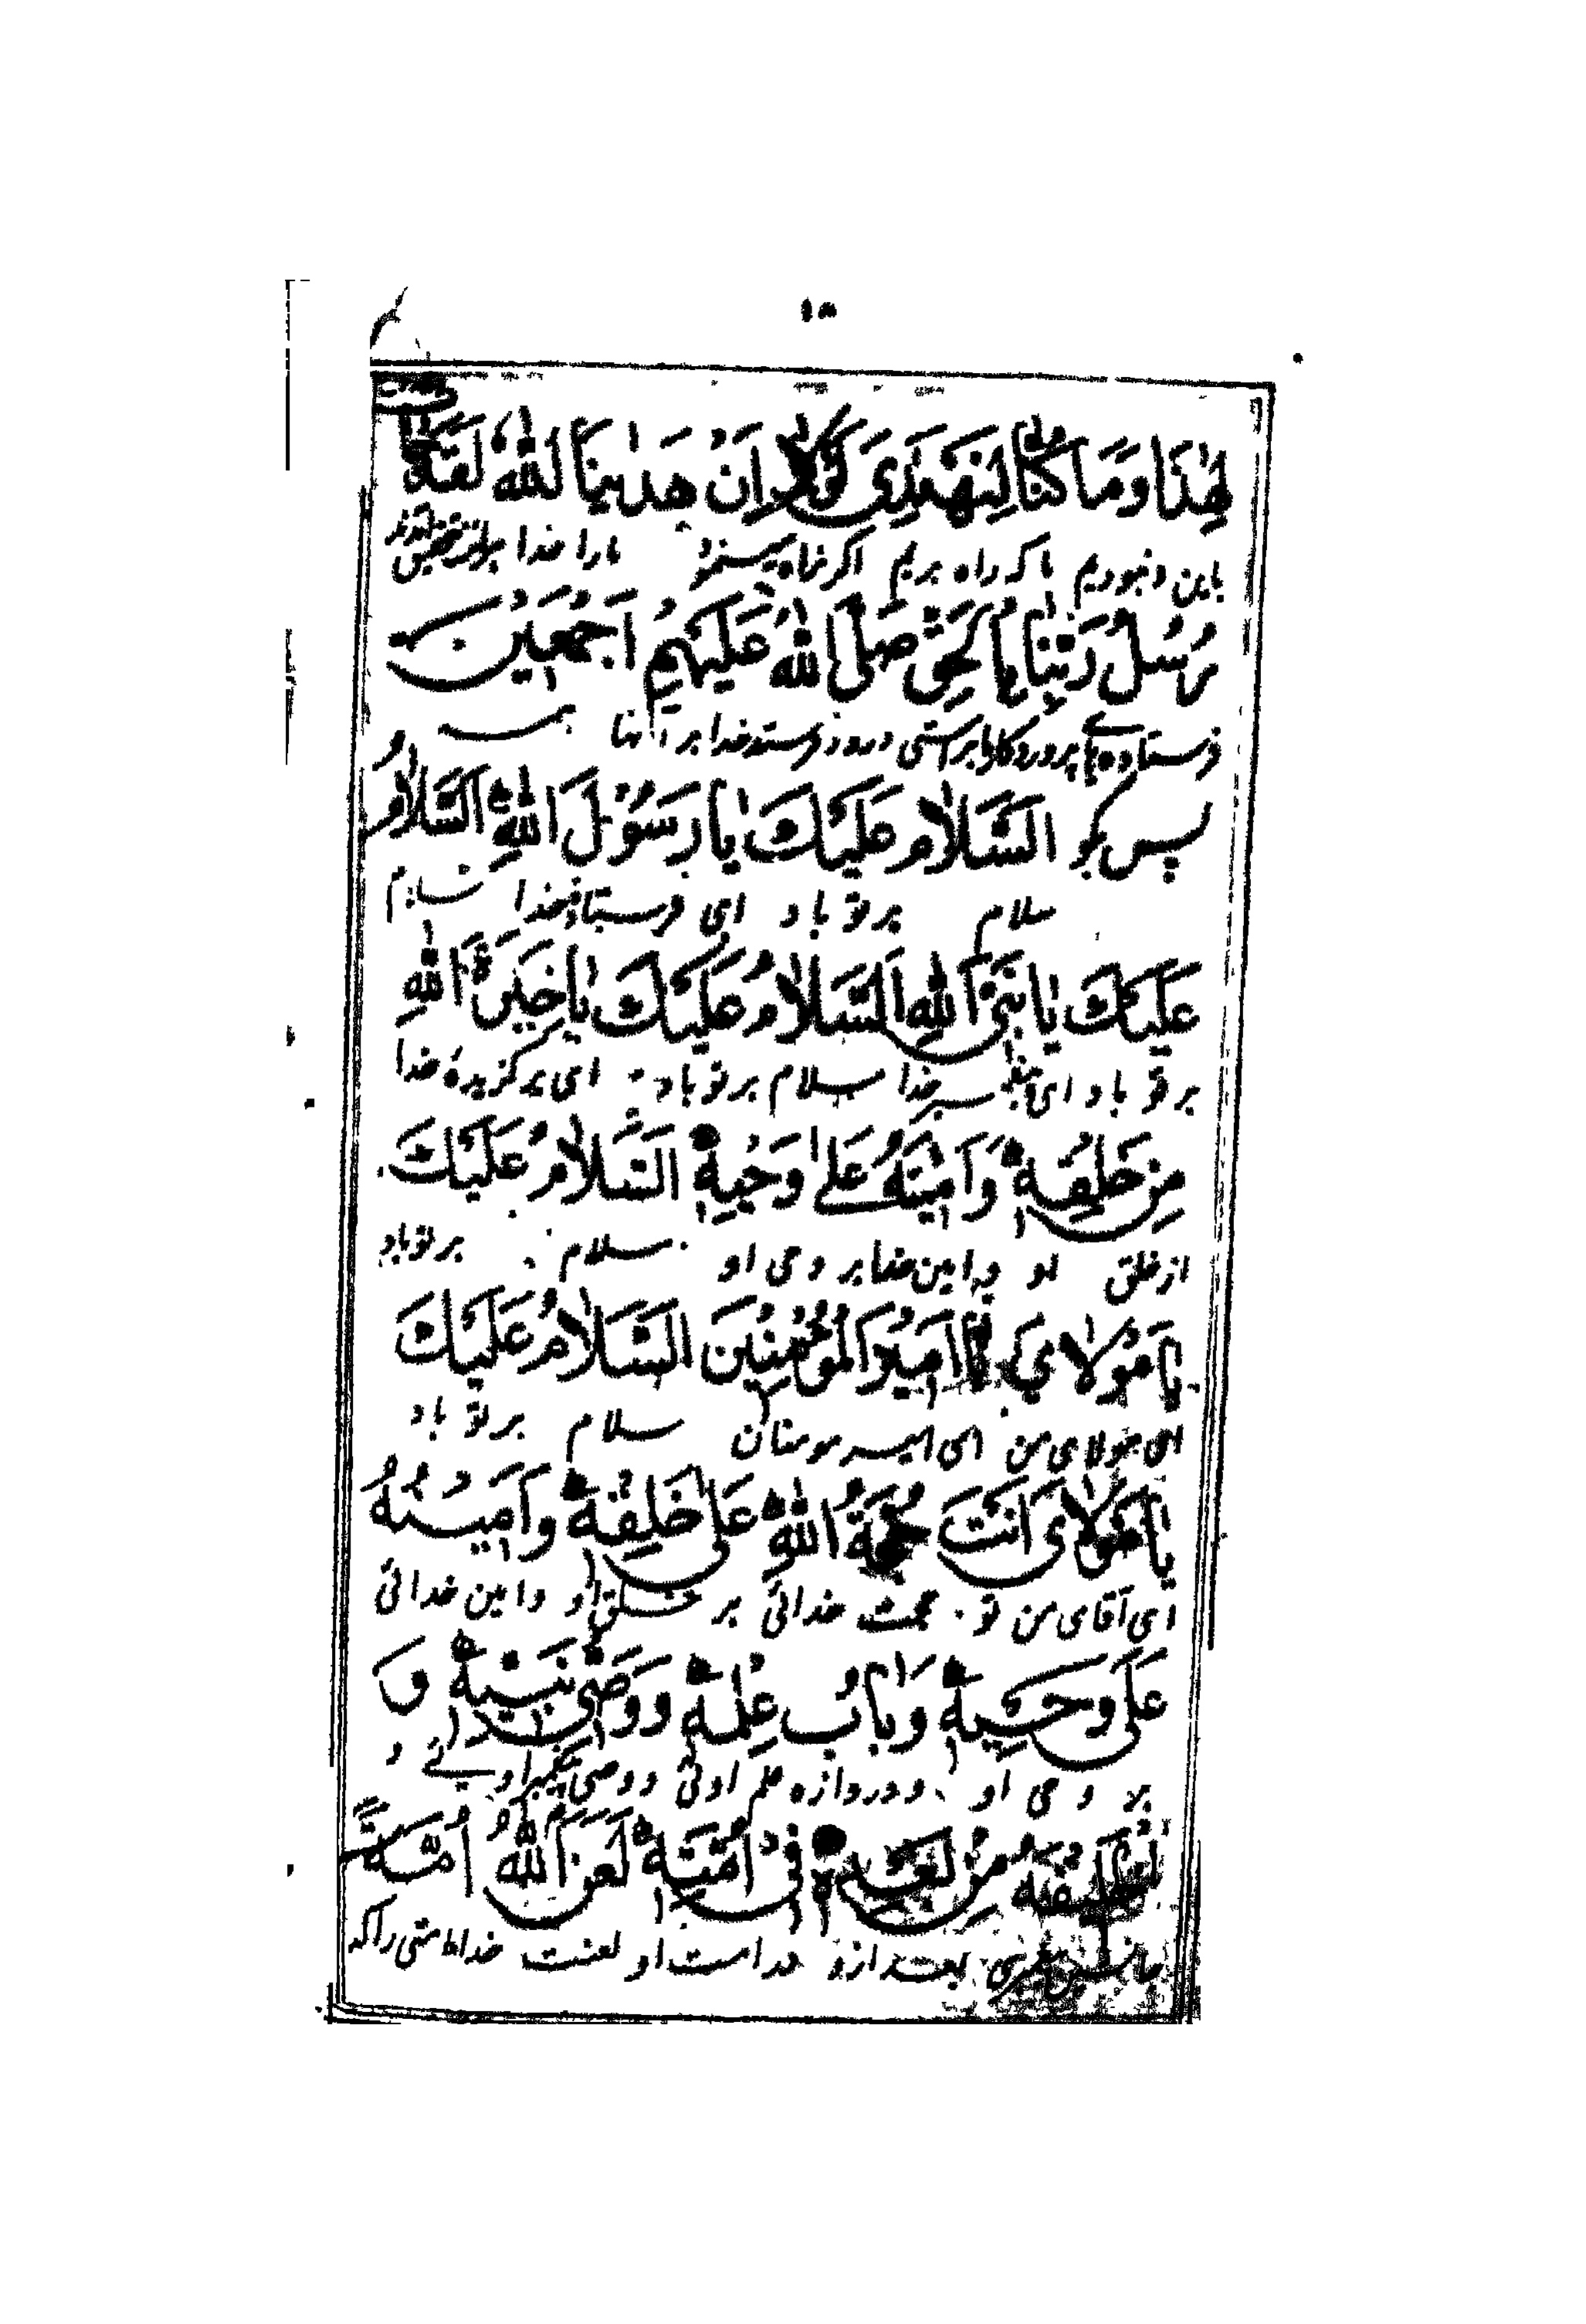 ١٥
لِهٰذَا وَمَا كُنَّا لِنَهْتَدِيَ لَوْلَا اَنْ هَدٰينَا اللّٰهُ لَقَدْ
باين ونبوديم ما كه راه بريم اگر نه راه مينمود ما را خدا
رُسُلُ رَبِّنَا بِالْحَقِّ صَلَّى اللّٰهُ عَلَيْهِمْ اَجْمَعِيْنَ
فرستاده‌هاى پروردگار ما براستى درود فرستد خدا بر آنها
پس بگو اَلسَّلَامُ عَلَيْكَ يَا رَسُوْلَ اللّٰهِ اَلسَّلَامُ
سلام بر تو باد اى فرستاده خدا سلام
عَلَيْكَ يَا نَبِيَّ اللّٰهِ اَلسَّلَامُ عَلَيْكَ يَا خِيَرَةَ اللّٰهِ
بر تو باد اى پيغمبر خدا سلام بر تو باد اى برگزيدهٔ خدا
مِنْ خَلْقِهٖ وَاَمِيْنَهُ عَلٰى وَحْيِهٖ اَلسَّلَامُ عَلَيْكَ
از خلق او و امين خدا بر وحى او سلام بر تو باد
يَا مَوْلَايَ يَا اَمِيْرَ الْمُؤْمِنِيْنَ اَلسَّلَامُ عَلَيْكَ
اى مولاى من اى امير مومنان سلام بر تو باد
يَا مَوْلَايَ اَنْتَ حُجَّةُ اللّٰهِ عَلٰى خَلْقِهٖ وَاَمِيْنُهُ
اى آقاى من تو حجت خدائى بر خلق او و امين خدائى
عَلٰى وَحْيِهٖ وَبَابُ عِلْمِهٖ وَوَصِيُّ نَبِيِّهٖ وَ
بر وحى او و دروازه علم اوئى و وصى پيغمبر اوئى و
خَلِيْفَتُهُ مِنْ بَعْدِهٖ فِيْ اُمَّتِهٖ لَعَنَ اللّٰهُ اُمَّةً
جانشين بعد از او در امت او لعنت خدا امتى را كه